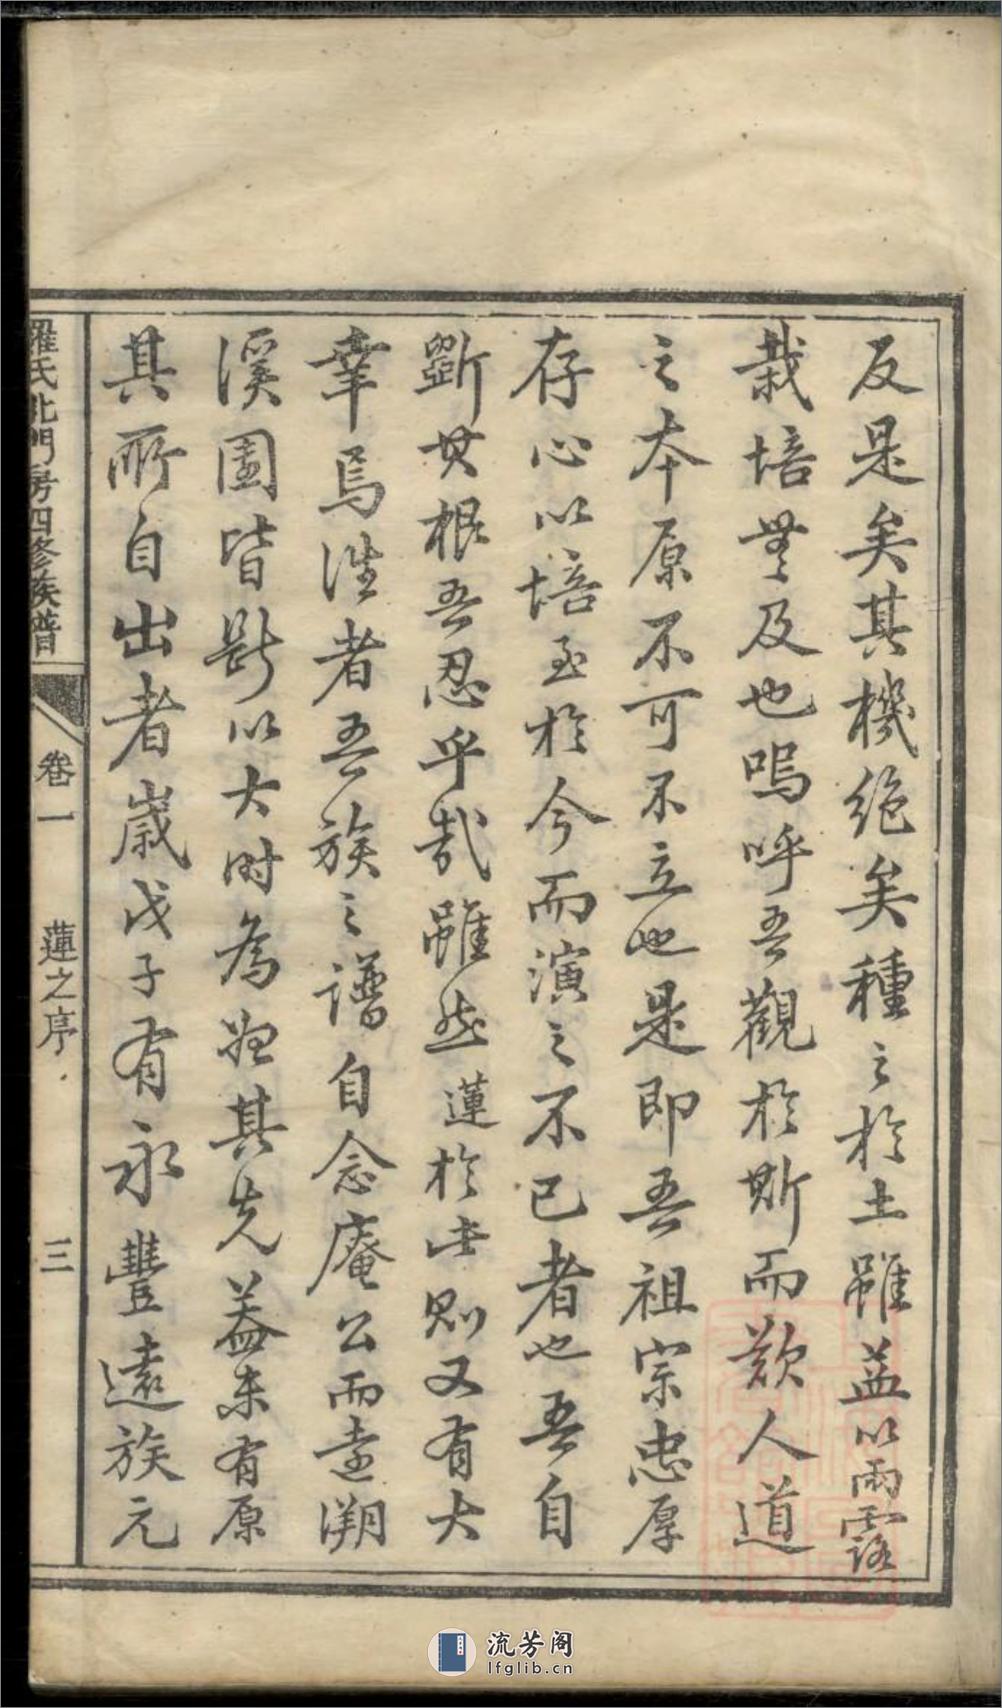 反是矣其機絶矣種之於土雖益以雨露
栽培無及也嗚呼吾觀於斯而歎人道
之本原不可不立也是即吾祖宗忠厚
存心以培至於今而演之不已者也吾自
斵其根吾忍乎哉雖然蓮於此則又有大
幸焉潍者吾族之譜自念庵公而遠溯
溪園皆斷以大時為始其先蓋未有原
其所自出者歲戊子有永豐遠族元
羅氏北門房四修族譜
卷一
蓮之序
三
流芳阁
lfglib.cn